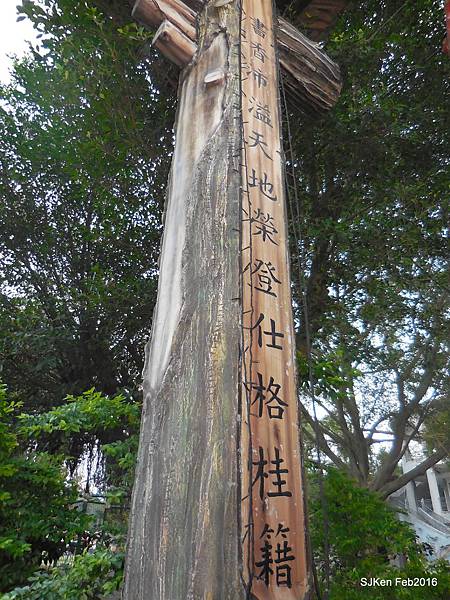 書香沛溢天地榮登仕格桂籍
SJKen Feb2016